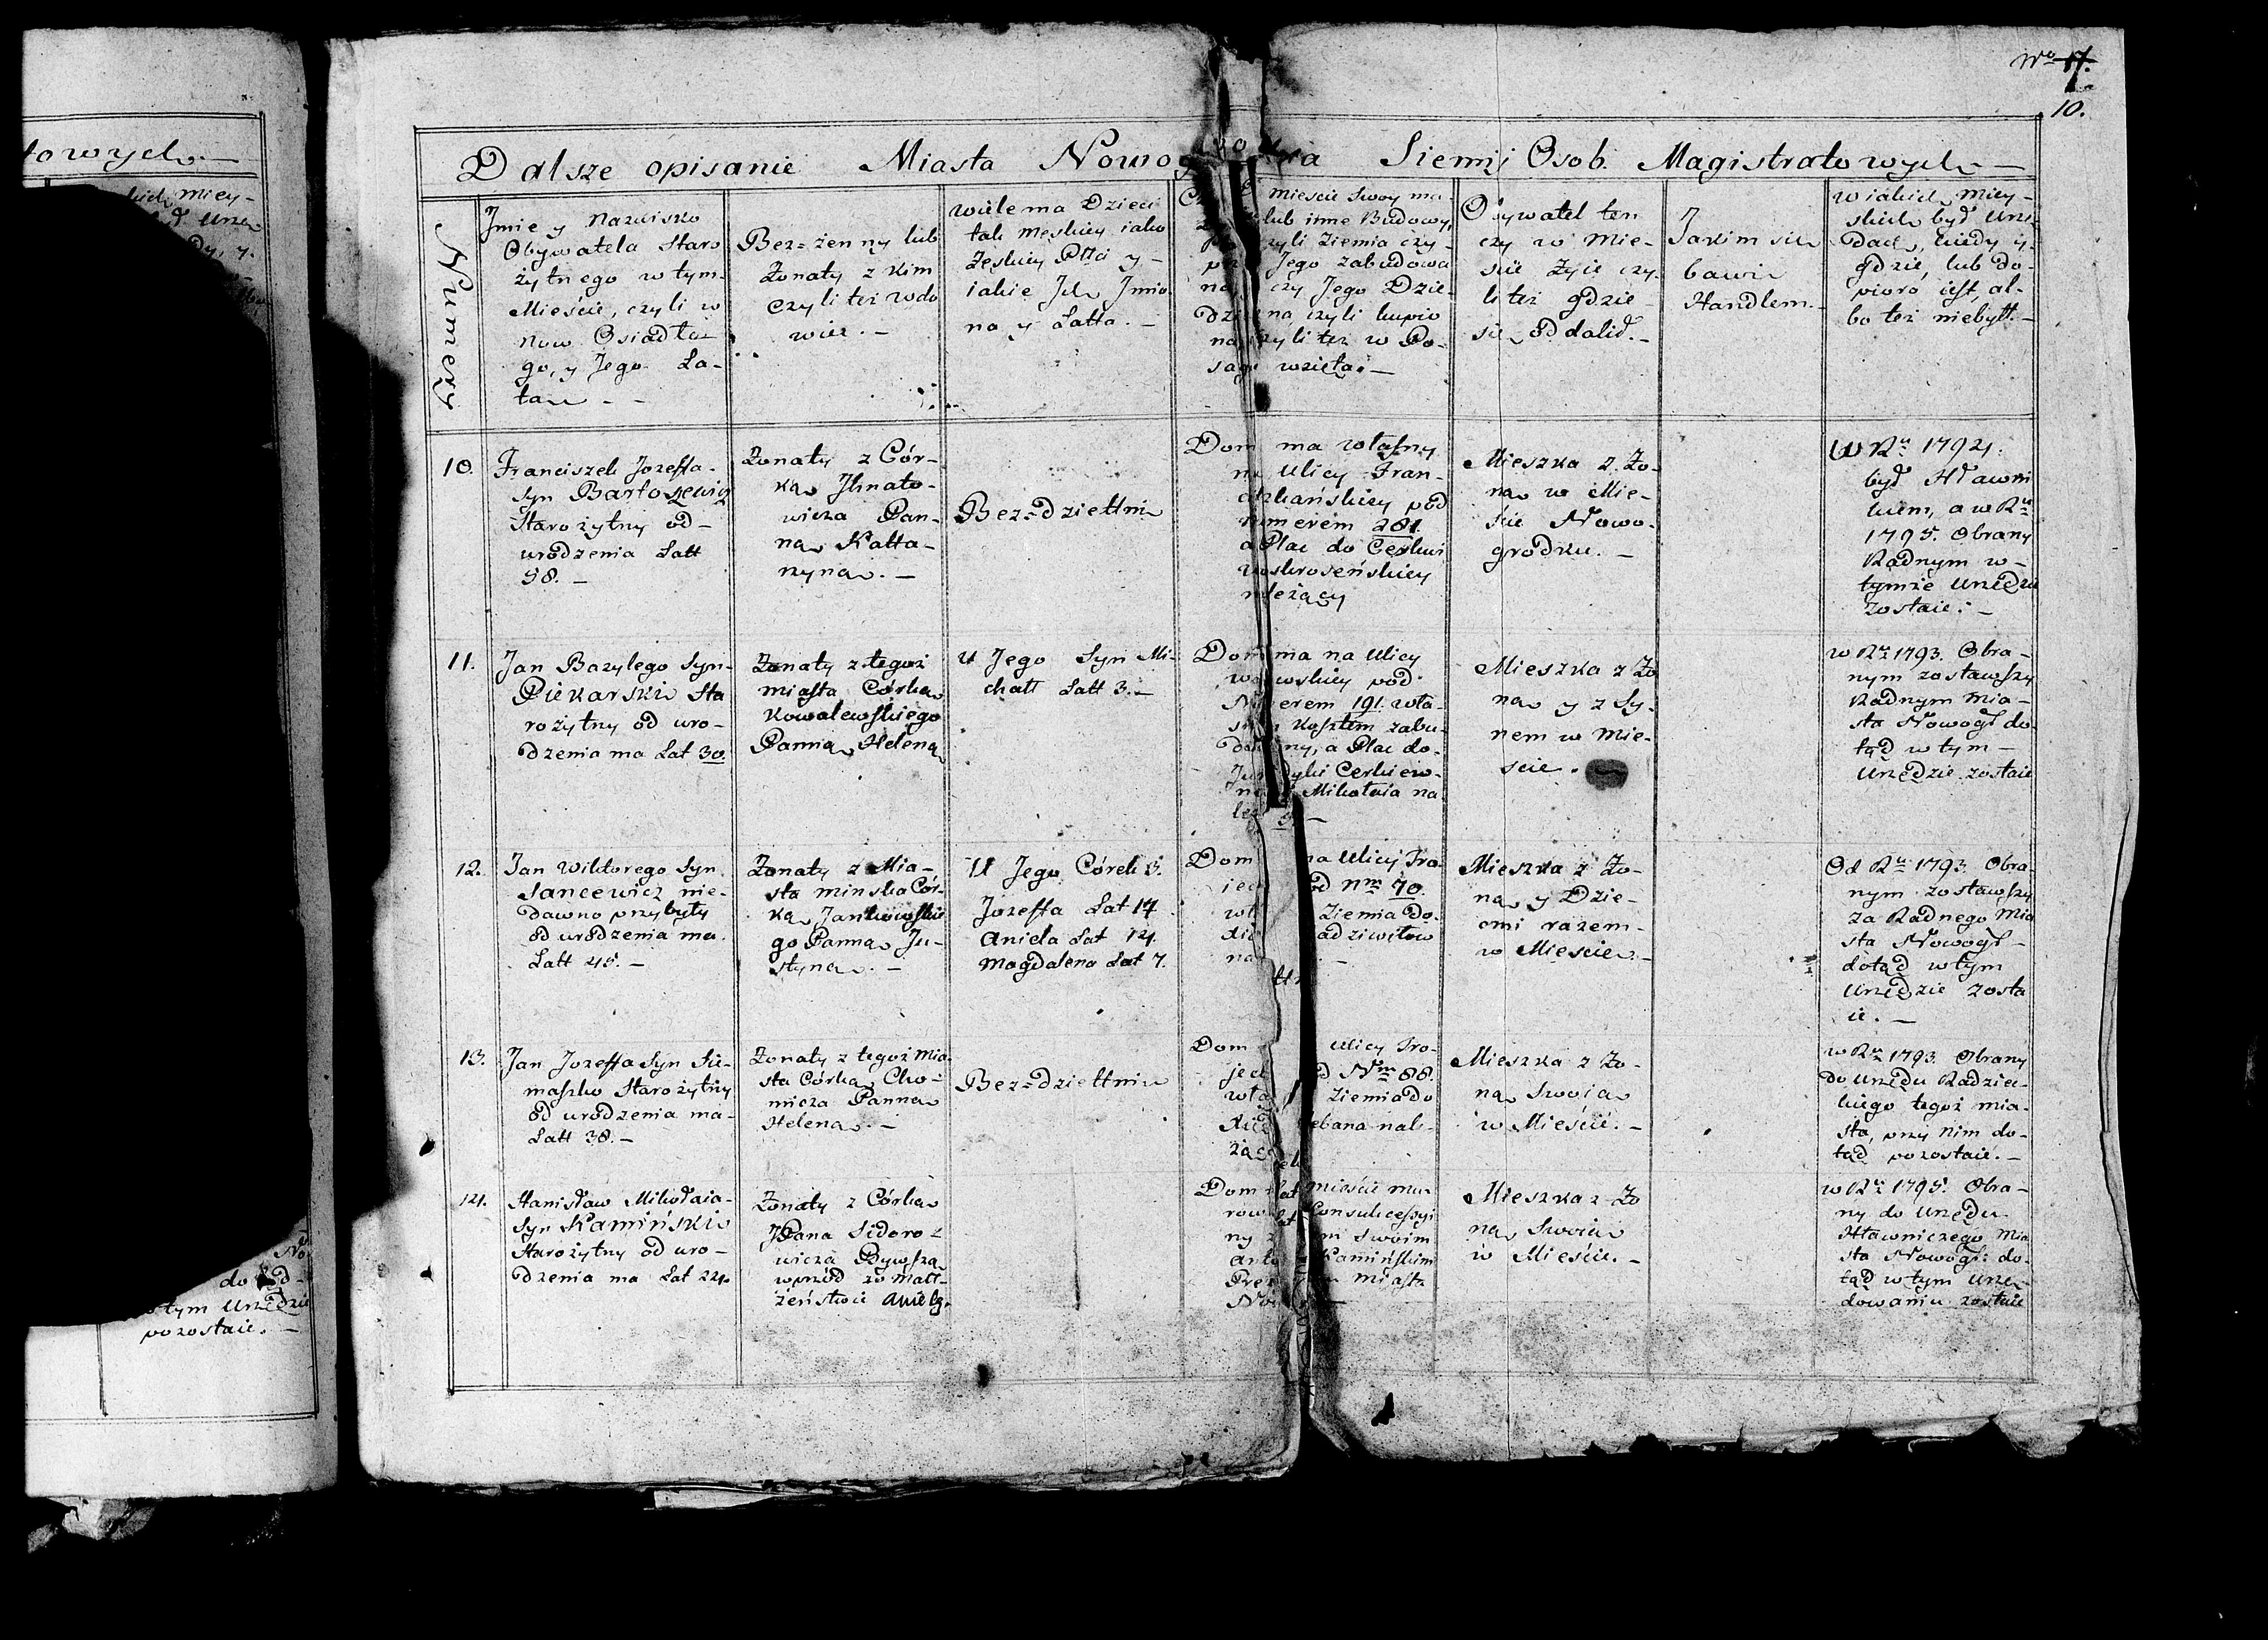 towych
miey-
Urze
dy, y.
do
tym Urzędzie
pozostaie. —
No 17.
10.
Dalsze opisanie Miasta Nowog Siemij Osob. Magistratowych —
Numery
Jmie y Nazwisko
Obywatela Staro
żytnego w tym
Mieście, czyli w
now Osiadłe
go, y Jego La-
tau - -
Bez=żenny lub
Żonaty z kim
czyli też wdo
wiec. —
Wiele ma Dzieci
tak męskiey iako
Żęskiey Płci y —
iakie Jch Jmio
na y Latta. —
Mieście Swoy ma
lub inne Budowy,
czyli Ziemia czy-
Jego zabudowa
na czy Jego Dzie-
dziczna czyli kupio
na czyli też w Po-
sagu wzięta. —
Obywatel ten
czy w Mie-
ście Żyie czy
li też gdzie
się oddalił. —
Jakim się
bawi
Handlem. —
W iakich miey-
skich był Urzę
dach, kiedy y
gdzie, lub do-
pioro iest al-
bo też niebył. —
10.
Franciszek Jozeffa
Syn Bartoszewicz
Starożytny od
urodzenia Latt
58. —
Żonaty z Cór-
ką Jhnato-
wicza Pan-
ną Katta-
rzyną. —
Bez=dziettni
Dom ma własny
na Ulicy Fran-
ciszkańskiey pod
numerem 281.
a Plac do Cerkwi
Woskroseńskiey
należący
Mieszka z Żo-
ną w Mie-
ście Nowo-
grodku. —
W Ru 1794.
był Hławni
kiem, a w Ru
1795. Obrany
Radnym w —
tymże Urzędzie
zostaie. —
11.
Jan Bazylego Syn
Piekarski Sta
rożytny od uro-
dzenia ma Lat 30.
Żonaty z tegoż
miasta Córką
Kowalewskiego
Panną Heleną
U Jego Syn Mi-
chałł Latt 3. —
Dom ma na Ulicy
pod
Numerem 191. wła-
snym kosztem zabu-
dowany, a Plac do
Jurydyki Cerkiew-
Mikołaia na
leżący —
Mieszka z Żo
ną y z Sy-
nem w Mie-
ście. —
w Ru 1793. Obra-
nym zostawszy
Radnym Mia-
sta Nowogł do
tąd w tym —
Urzędzie zostaie
12.
Jan Wiktorego Syn
Jancewicz nie-
dawno przybyły
od urodzenia ma
Latt 45. —
Żonaty z Mia-
sta Minska Cór-
ką Jankowskie
go Panną Ju-
styną. —
U Jego Córek 3.
Jozeffa Lat 17
Aniela Lat 14.
Magdalena Lat 7.
Dom na Ulicy Tro-
iec pod Nm 70.
Ziemia do
Radziwiłow
Mieszka z Żo-
ną y Dzie-
cmi razem
w Mieście. —
Od Ru 1793. Obra
nym zostawszy
za Radnego Mia
sta Nowogł —
dotąd w tym
Urzędzie zosta
ie. —
13.
Jan Jozeffa Syn Sie-
maszko Starożytny
od urodzenia ma
Latt 38. —
Żonaty z tegoż Mia
sta Córką Cho-
micza Panną
Heleną. —
Bez=dziettni
Dom Ulicy Tro-
iec pod Nm 88.
Ziemia do
Plebana nale-
żąc
Mieszka z Żo-
ną Swoią
w Mieście. —
w Ru 1793. Obrany
do Urzędu Radziec-
kiego tegoż mia-
sta, przy nim do-
tąd pozostaie. —
14.
Stanisław Mikołaia
Syn Kamiński
Starożytny od uro-
dzenia ma Lat 24.
Żonaty z Córką
JPana Sidoro-
wicza Bywszą
wprzód w Mał-
żeństwie Anielą.
Dom mieście mu-
row
ny Swoim
Kamińskim
miasta
Mieszka z Żo
ną Swoią
w Mieście. —
w Ru 1795. Obra-
ny do Urzędu
Hławniczego Mia
sta Nowogł: do-
tąd w tym Urzę-
dowaniu zostaie